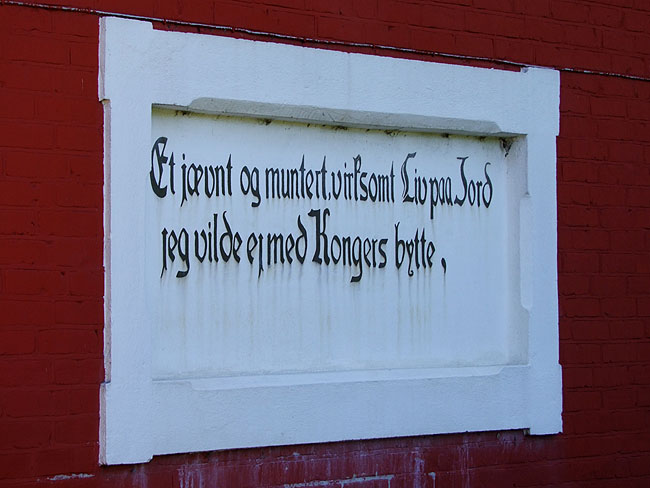 Et jævnt og muntert, virksomt Liv paa Jord
jeg vilde ej med Kongers bytte,